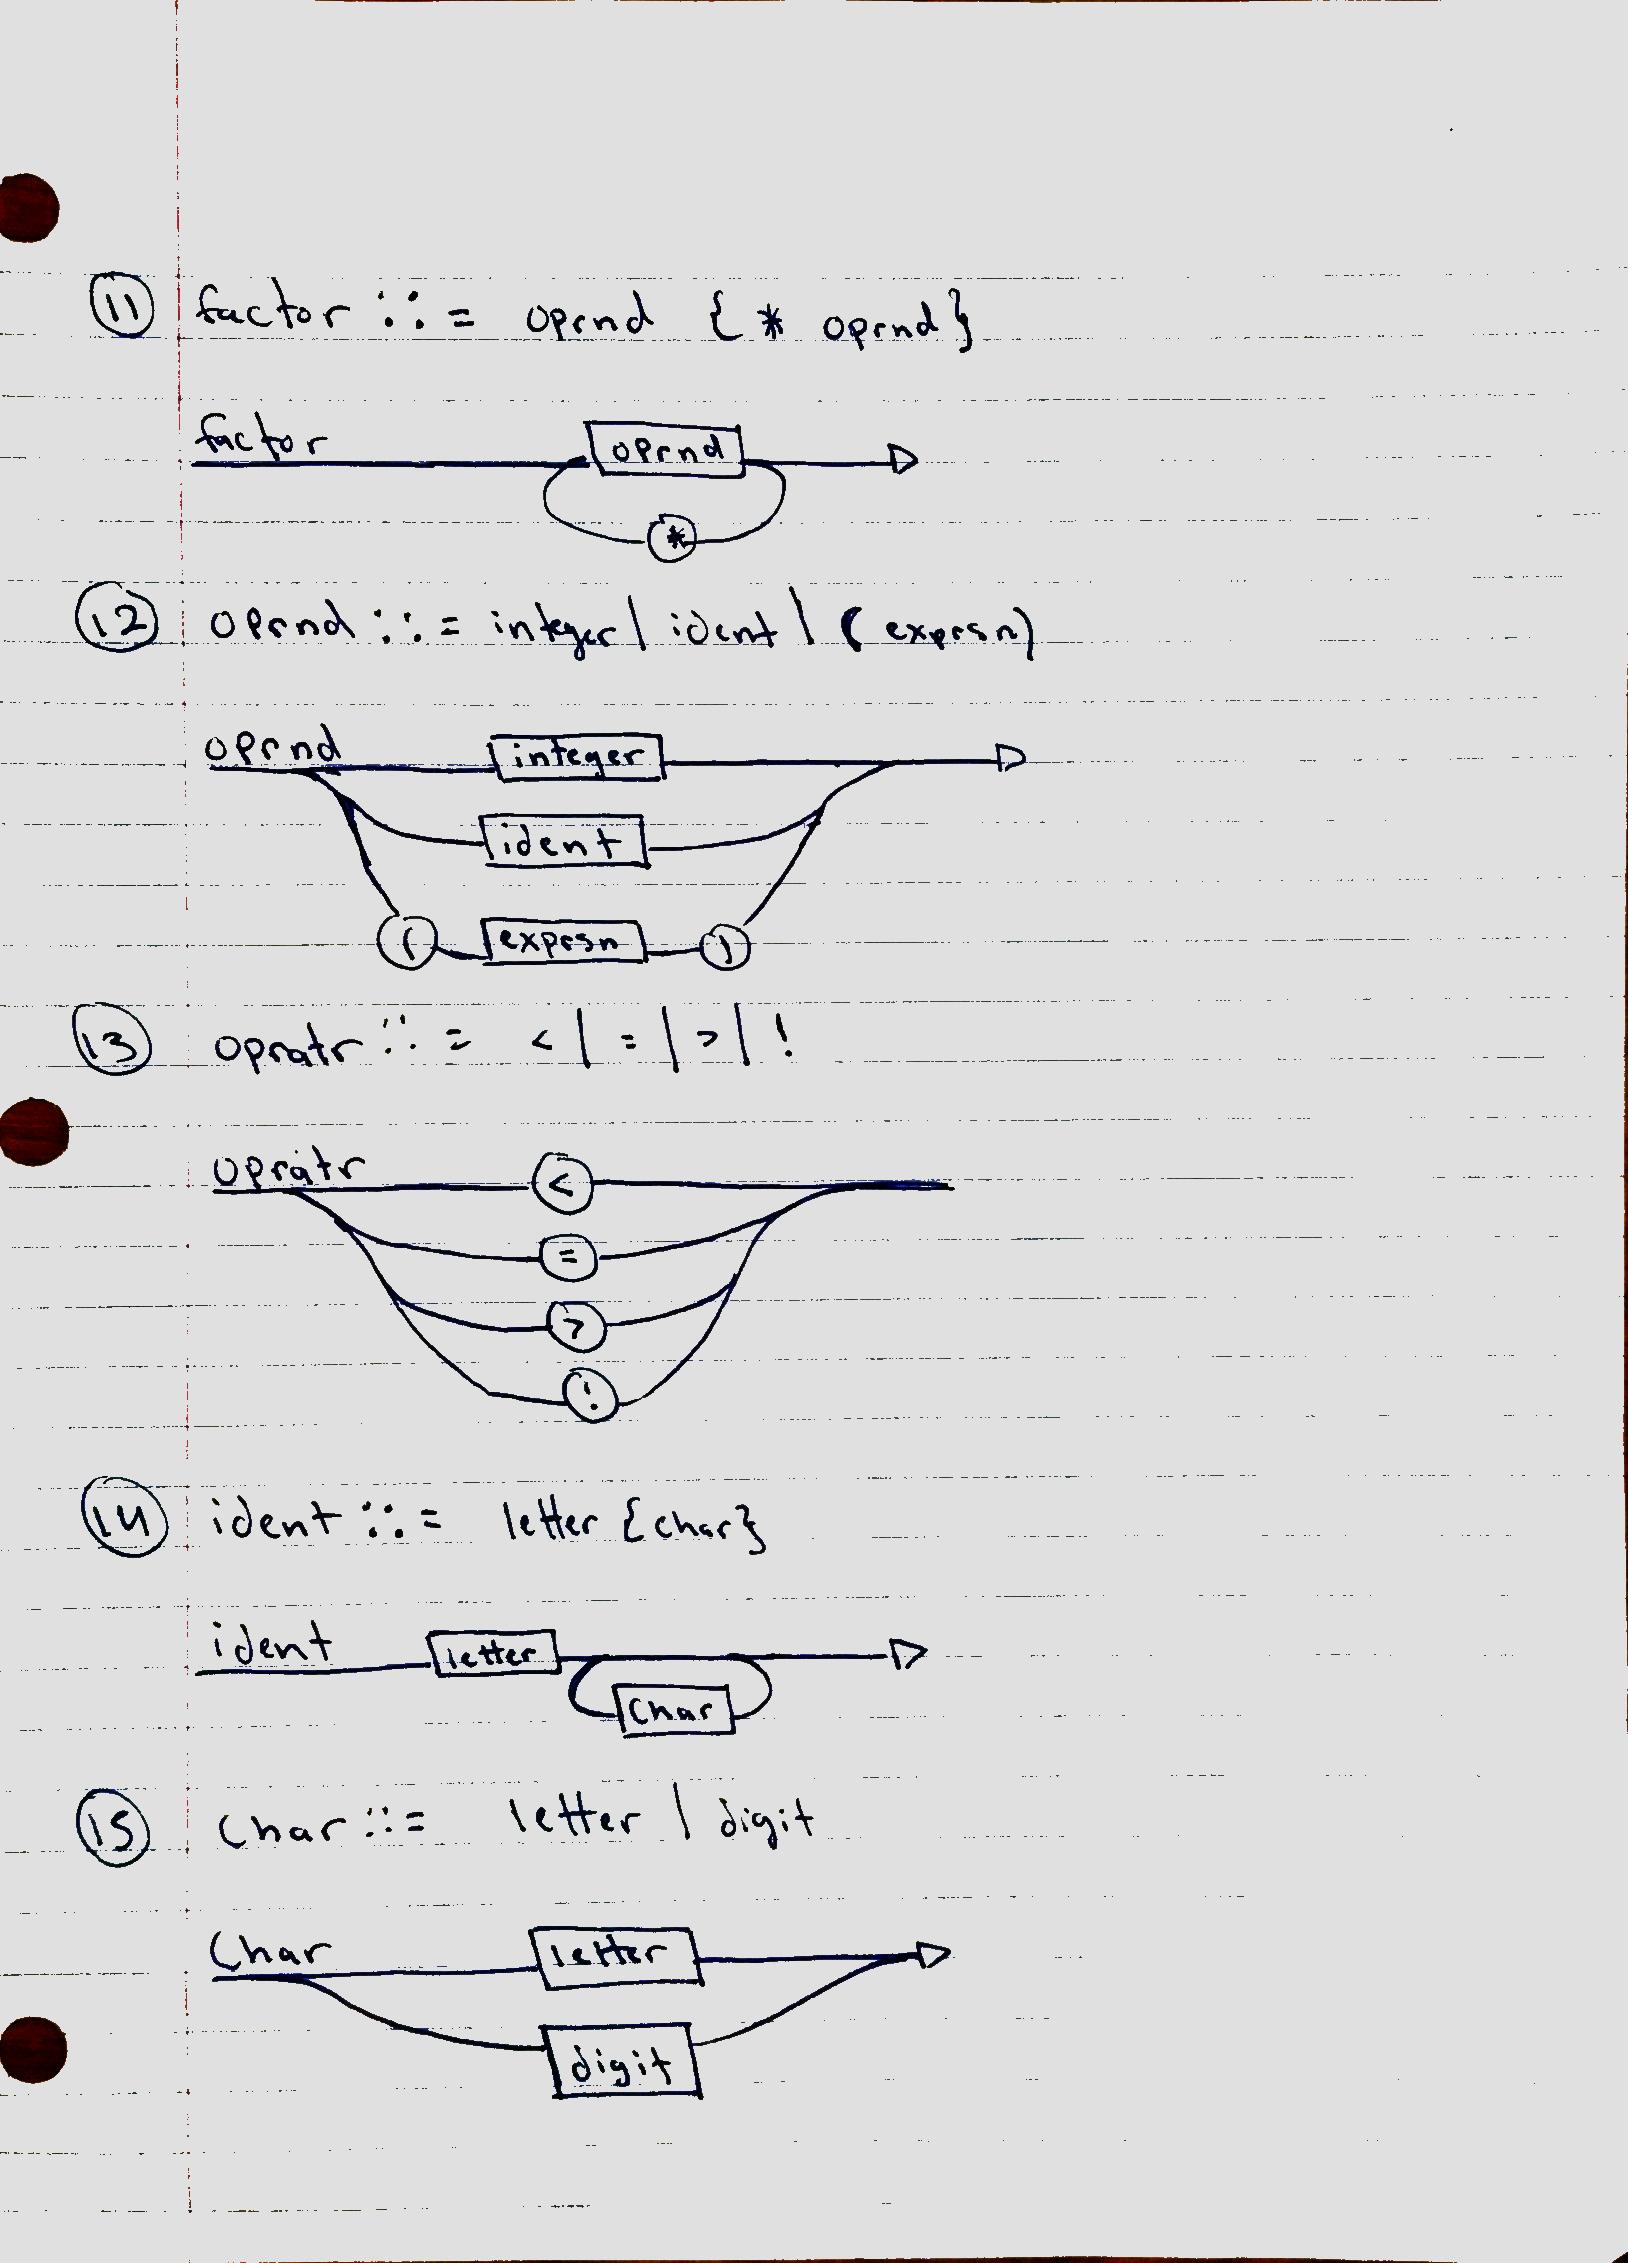 11 factor ::= oprnd {* oprnd}
factor oprnd
*
12 oprnd ::= integer | ident | (exprsn)
oprnd integer
ident
( exprsn )
13 opratr ::= < | = | > | !
opratr <
=
>
!
14 ident ::= letter {char}
ident letter
char
15 char ::= letter | digit
char letter
digit